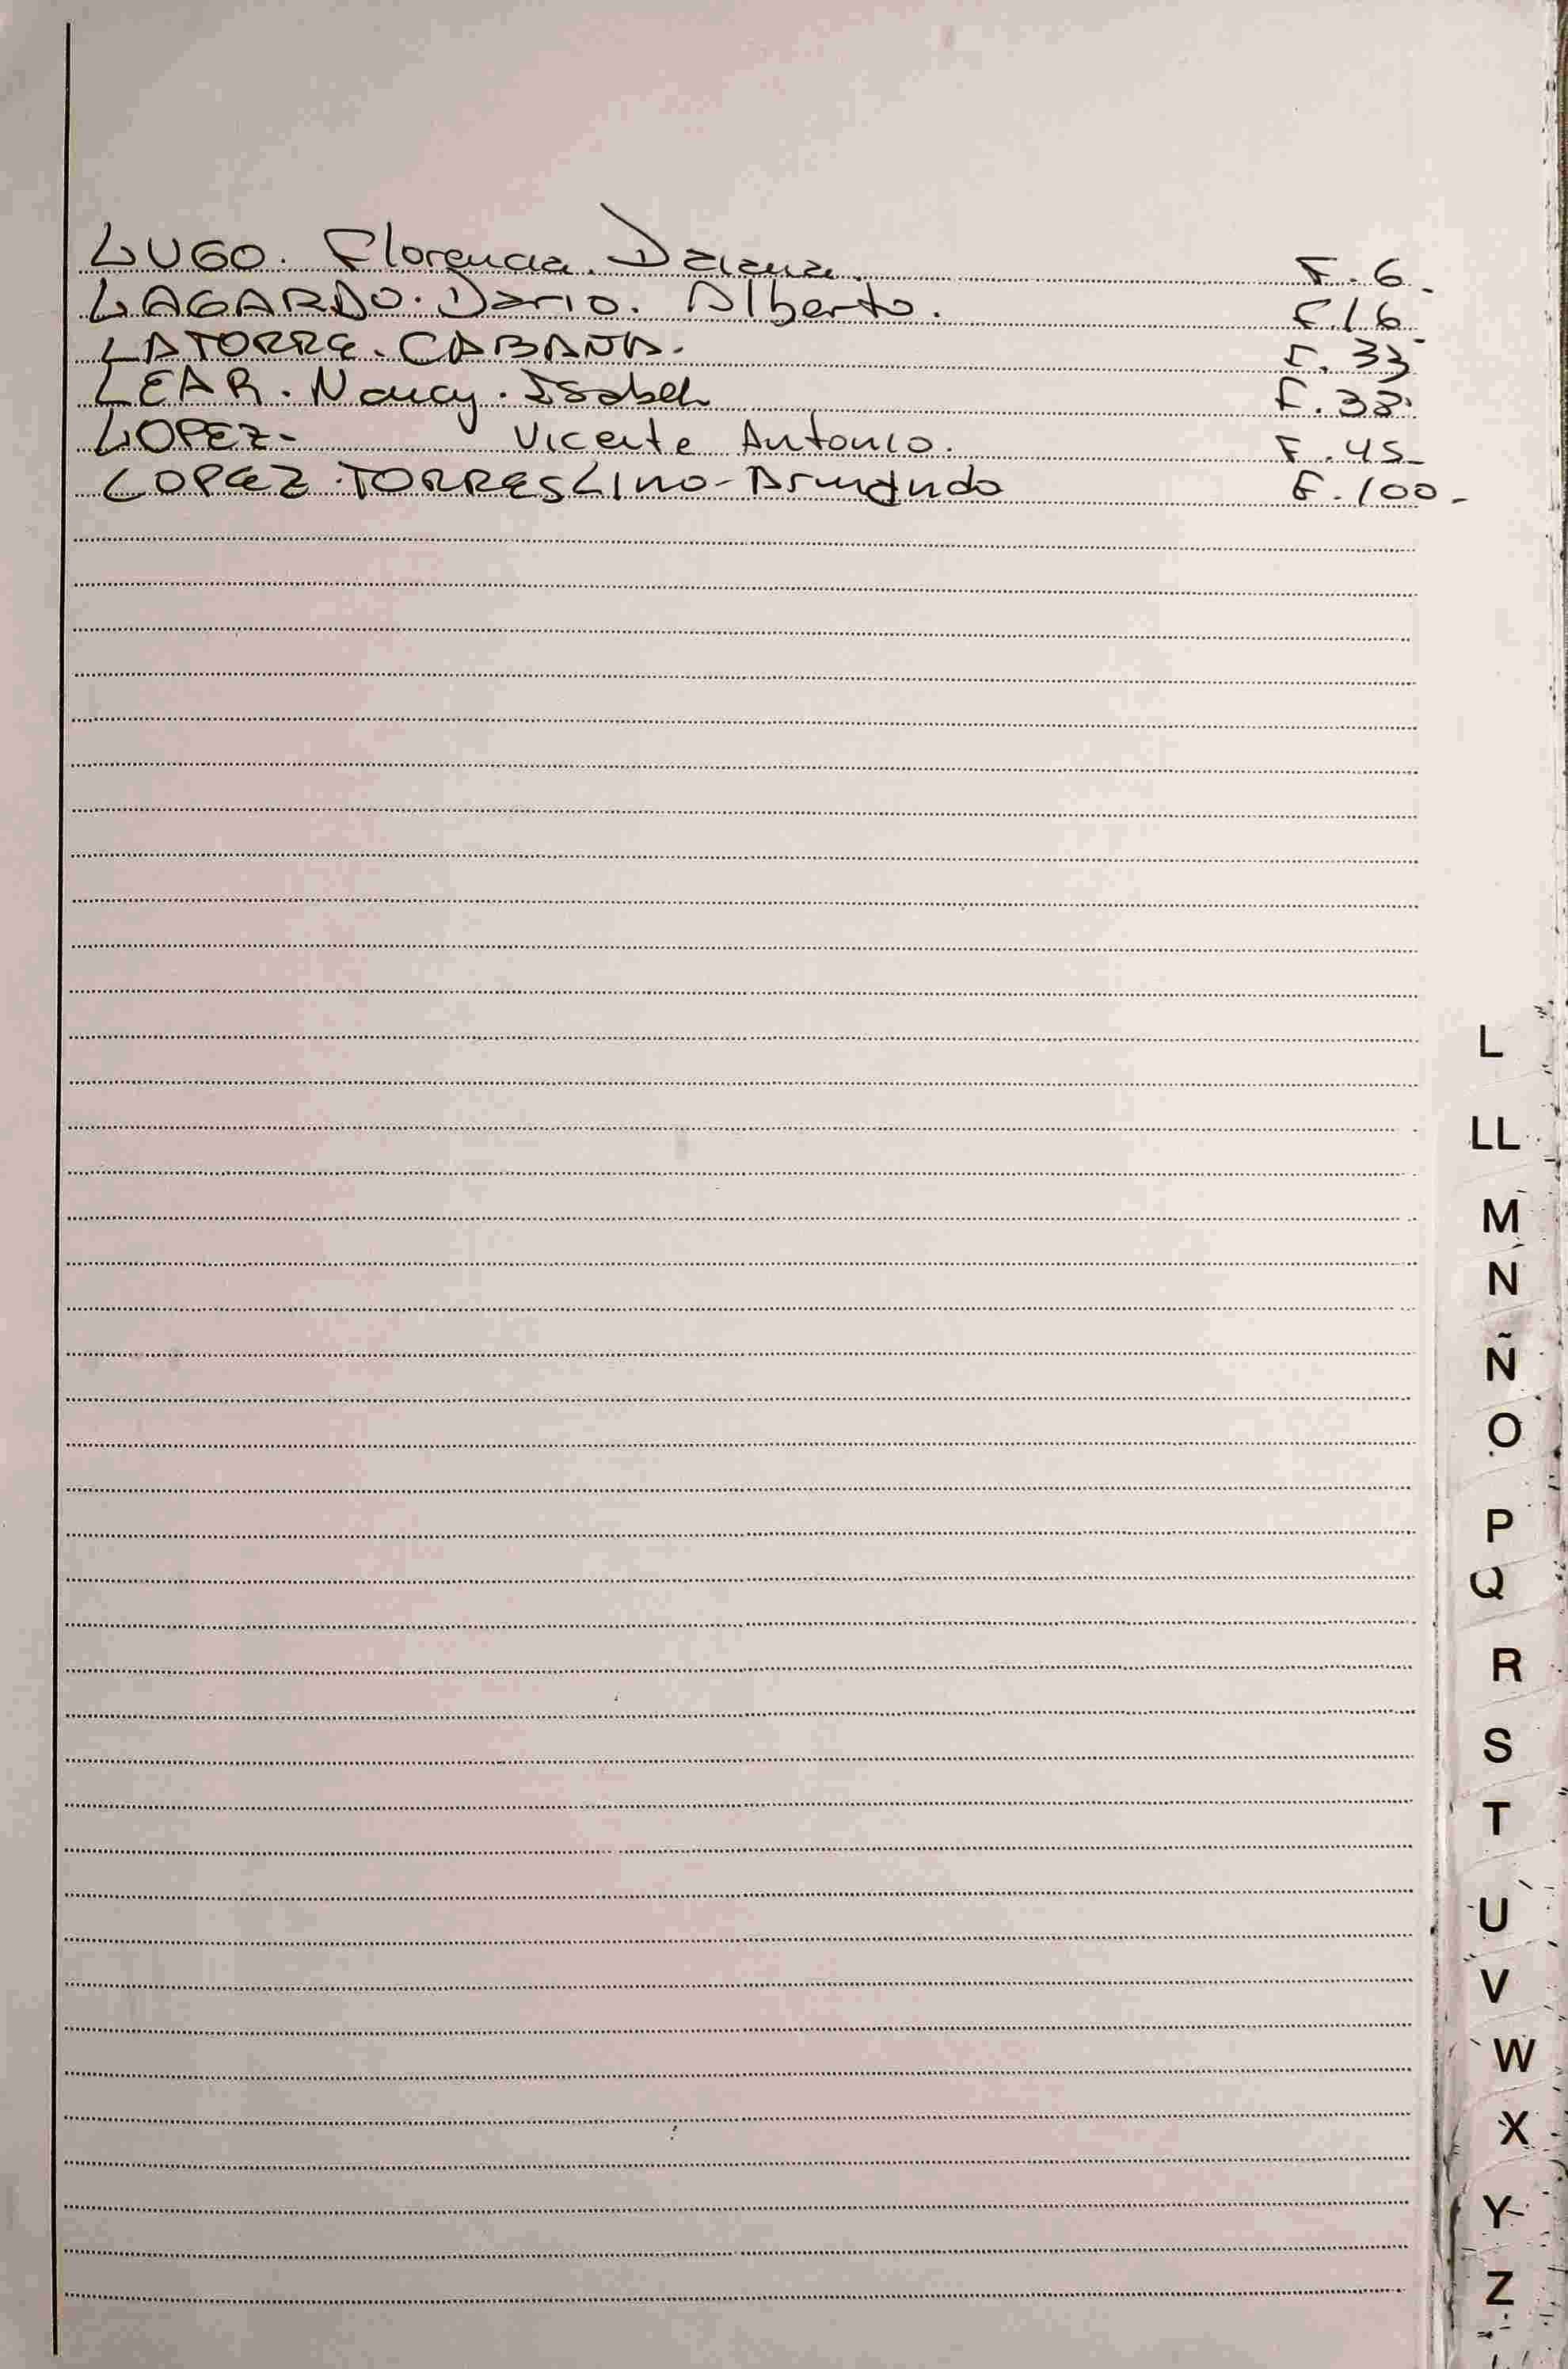 LUGO. Florencia. Daiana. F. 6.
LAGARDO. Dario. Alberto. F. 16.
LATORRE. CABANA. F. 33
LEAR. Nancy. Isabel F. 38.
LOPEZ- Vicente Antonio. F. 45-
LOPEZ. TORRES Lino- Armando F. 100.-
L
LL
M
N
Ñ
O
P
Q
R
S
T
U
V
W
X
Y
Z